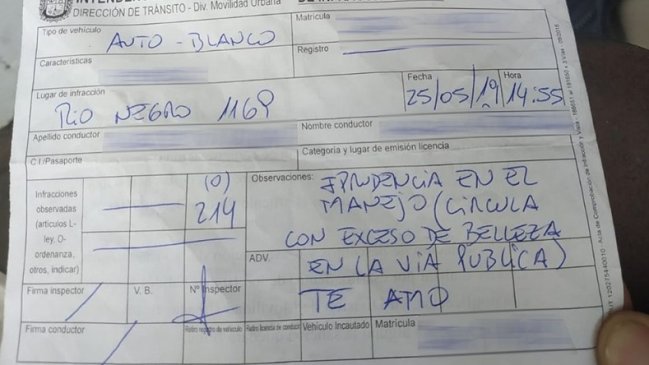 DIRECCIÓN DE TRÁNSITO - Div. Movilidad Urbana
Tipo de vehículo
AUTO - BLANCO
Matrícula
Características
Registro
Lugar de infracción
RIO NEGRO 1169
Fecha
25/05/19
Hora
14:55
Apellido conductor
Nombre conductor
C.I./Pasaporte
Categoría y lugar de emisión licencia
Infracciones
observadas
(artículos L-
ley, O-
ordenanza,
otros, indicar)
(O)
214
Observaciones:
IPRUDENCIA EN EL
MANEJO (CIRCULA
CON EXCESO DE BELLEZA
EN LA VIA PUBLICA)
ADV.
TE AMO
Firma inspector
V. B.
Nº Inspector
Firma conductor
Retiro registro de vehículo
Retiro licencia de conducir
Vehículo Incautado
Matrícula